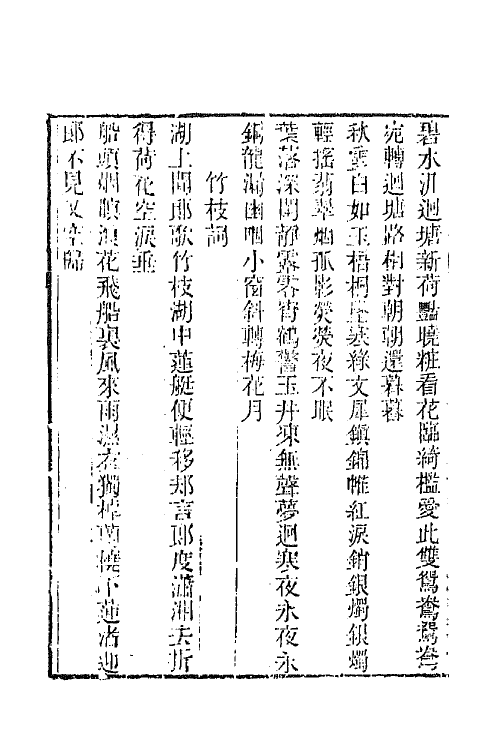 碧水汎迴塘新荷豔曉粧看花臨綺檻愛此雙鴛鴦鴛鴦
宛轉迴塘路相對朝朝還暮暮
秋雲白如玉梧桐墜寒綠文犀鎮錦帷紅淚銷銀燭銀燭
輕搖翡翠烟孤影熒熒夜不眠
葉落深閨靜露零宵鶴警玉井凍無聲夢迴寒夜永夜永
銅龍漏幽咽小窗斜轉梅花月
竹枝詞
湖上聞郎歌竹枝湖中蓮艇便輕移却言郎度瀟湘去折
得荷花空淚垂
船頭烟頭浪花飛船裊風來雨濕衣獨棹蘭橈下蓮渚迎
郎不見又空歸